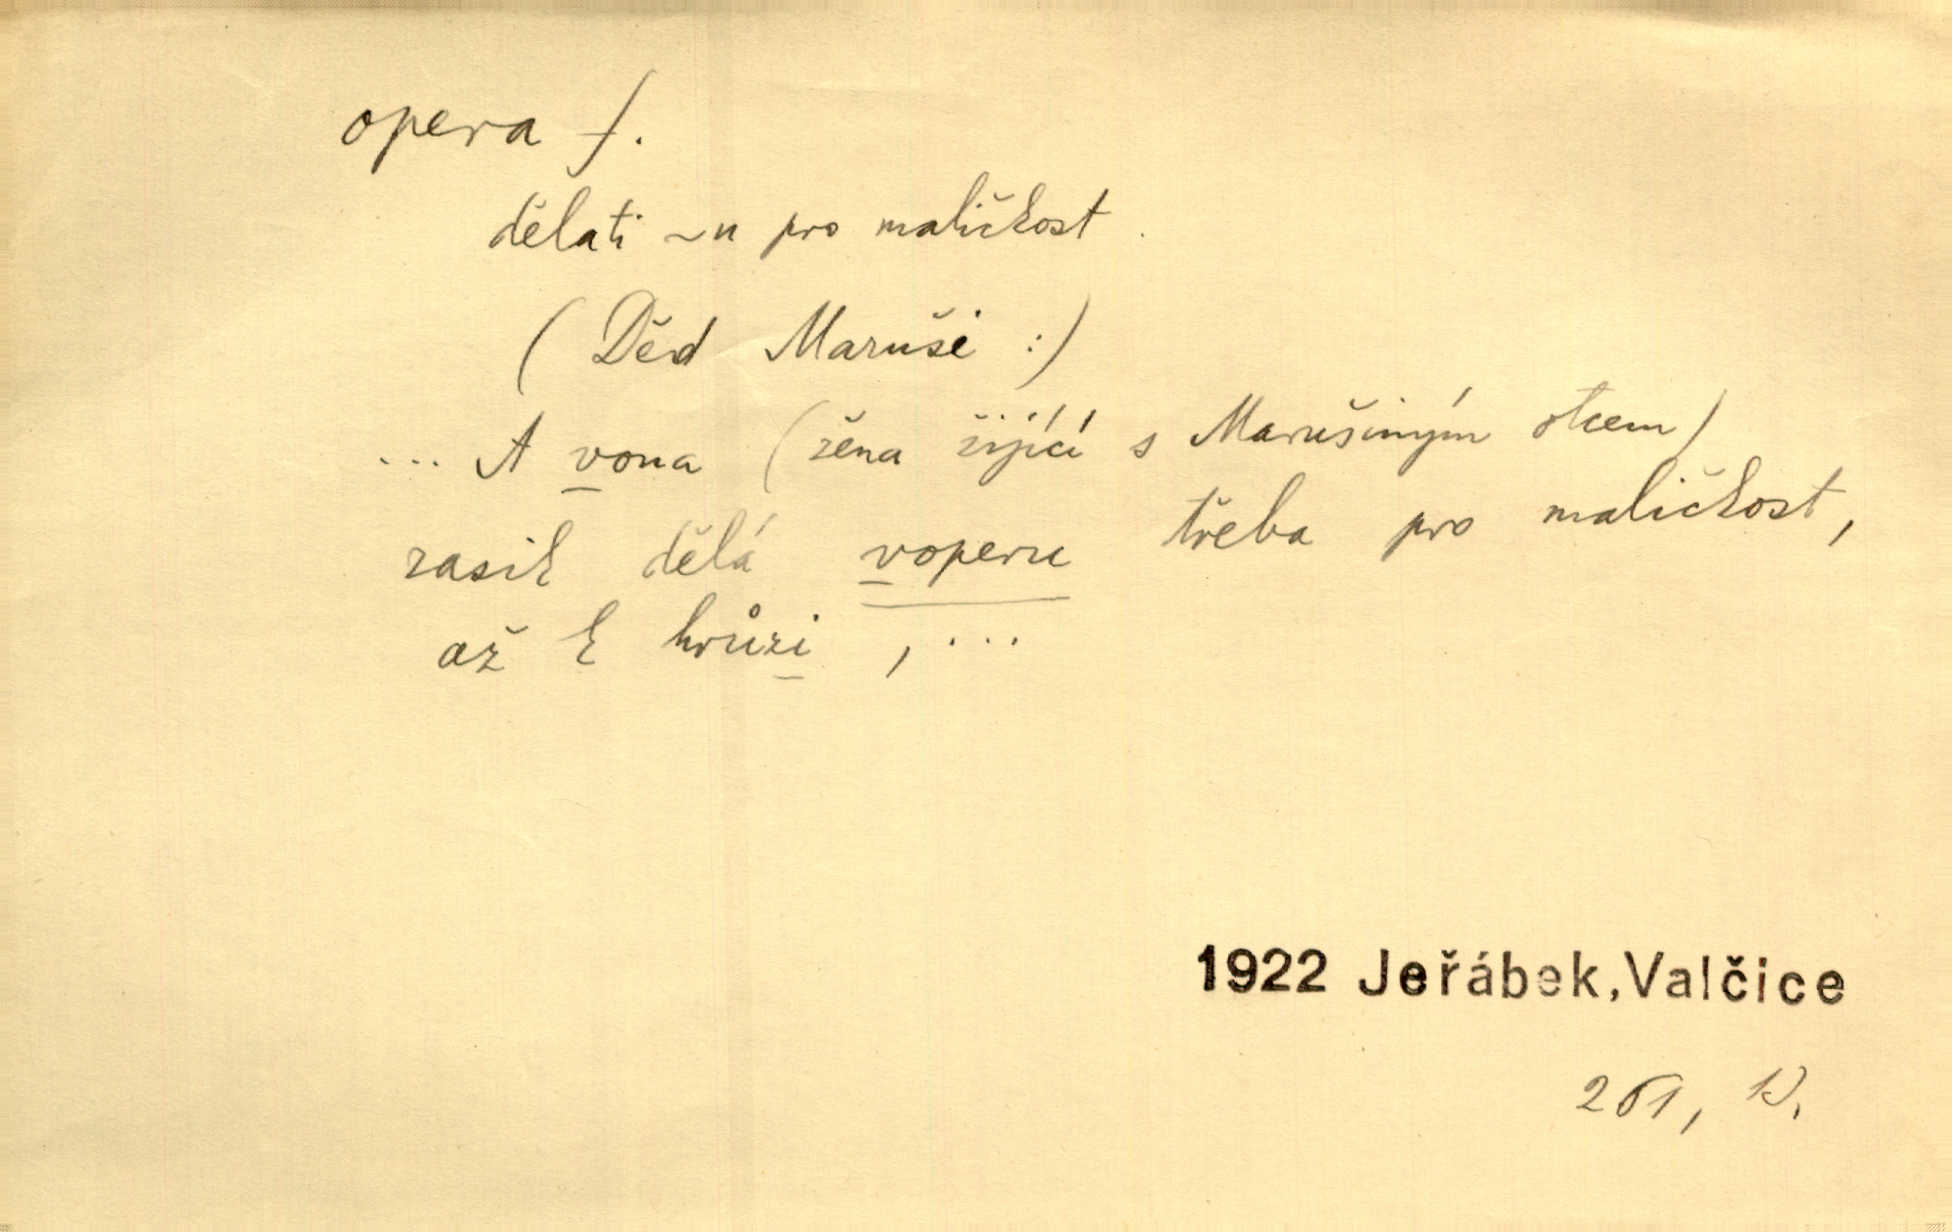 opera f.
dělati ~u pro maličkost.
(Děd Maruši:)
... A vona (žena žijící s Marušiným otcem)
zasik dělá voperu třeba pro maličkost,
až k hrůzi, ...
1922 Jeřábek, Valčice
261,